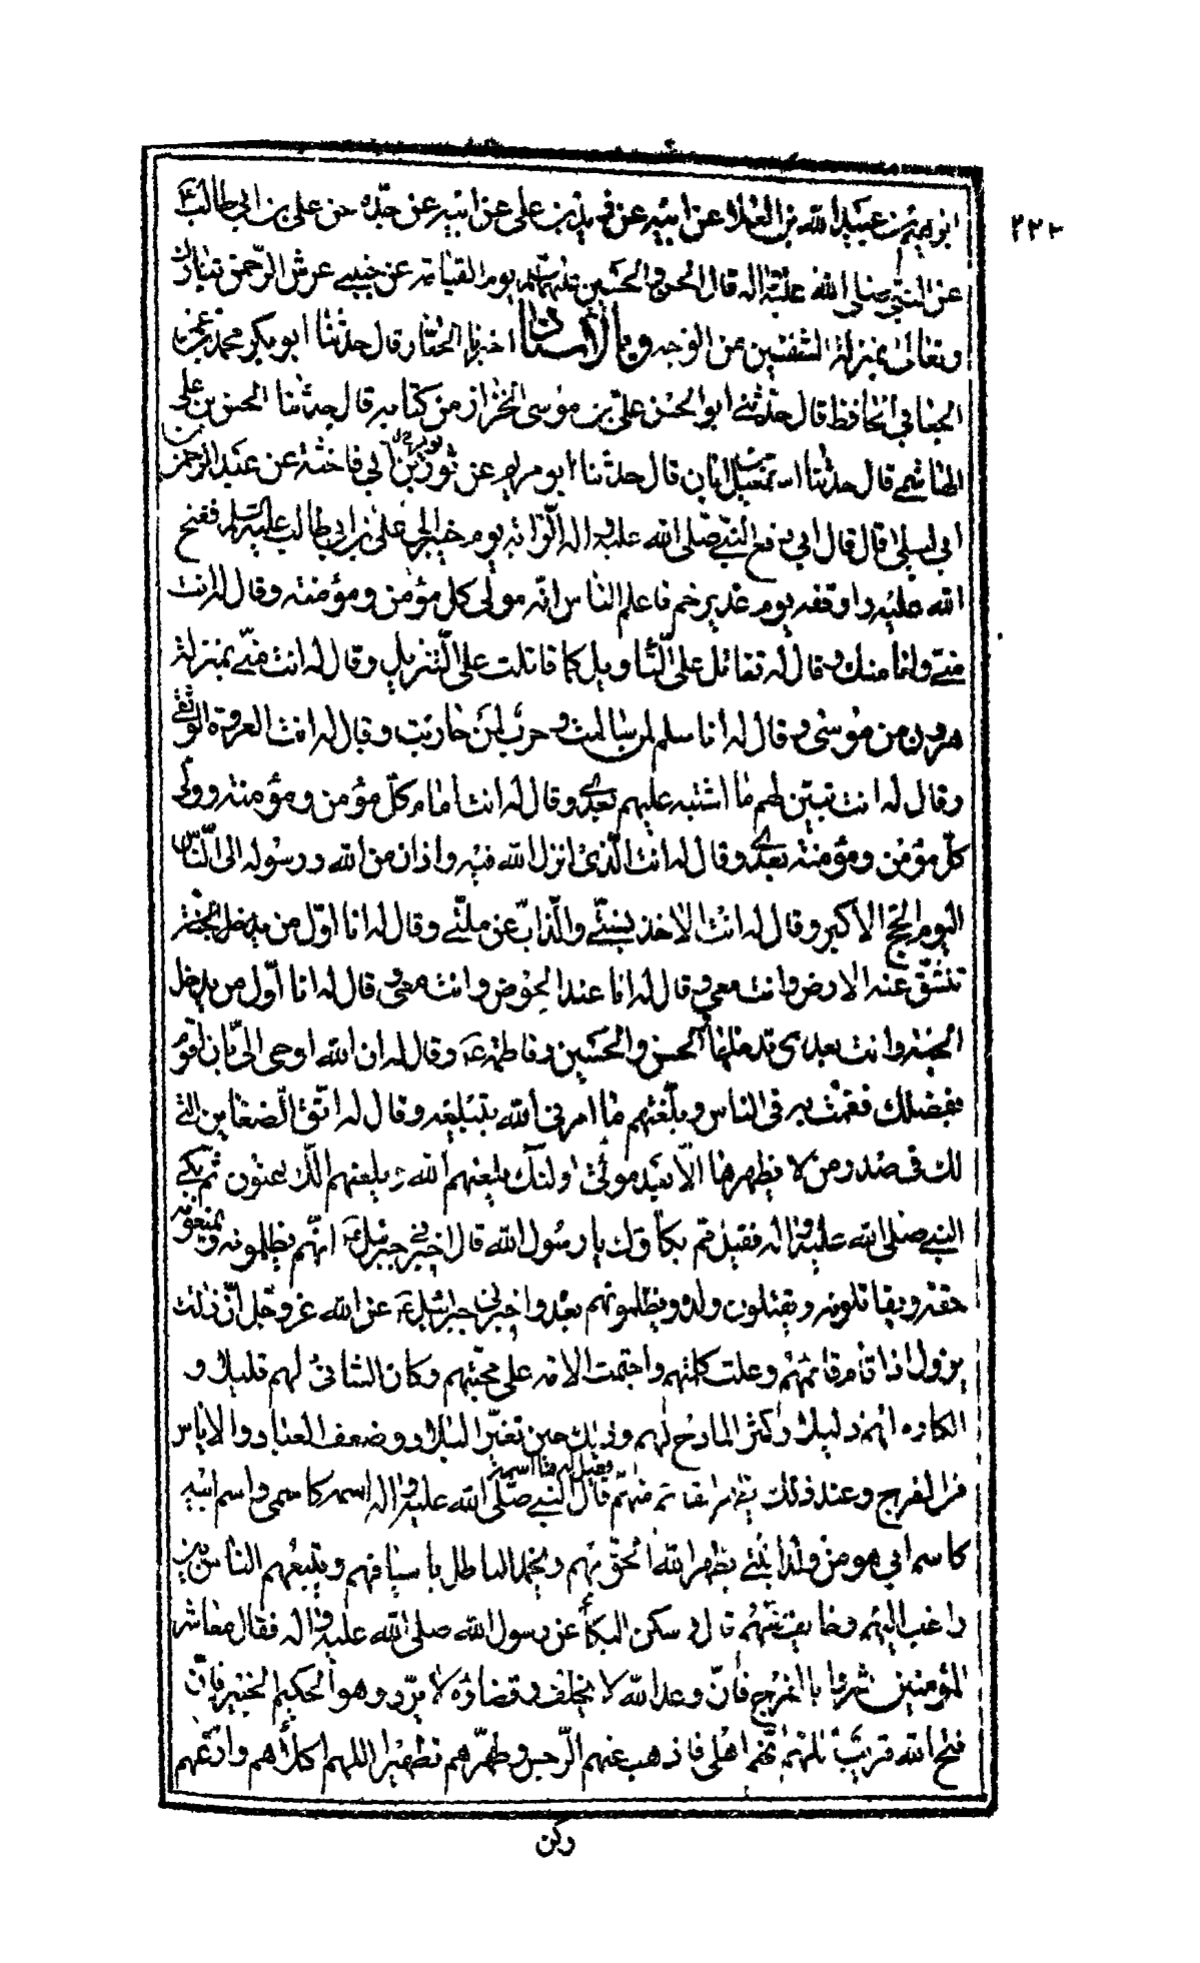 ٢٢٣
ابو عبيد الله بن العلا عن ابيه عن يزيد بن على عن ابيه عن جدّه عن على بن ابى طالب ع
عن النبى صلى الله عليه واله قال الحسن والحسين يوم القيامة عن جنبى عرش الرحمن تبارك
وتعالى بمنزلة الشنفين من الوجه وبالاسناد اخبرنا الحفّار قال حدثنا ابو بكر محمد بن عمر
الجعابى الحافظ قال حدثنى ابو الحسن علىّ بن موسى الخزاز من كتابه قال حدثنا الحسن بن على
الهاشمى قال حدثنا اسمعيل بن ابان قال حدثنا ابو مريم عن ثوير بن ابى فاختة عن عبد الرحمن بن
ابى ليلى قال قال ابى دفع النبى صلى الله عليه واله الرّاية يوم خيبر الى على بن ابى طالب عليه السلم ففتح
الله عليه واوقفه يوم غدير خم فاعلم الناس انّه مولى كل مؤمن ومؤمنة وقال له انت
منّى وانا منك وقال له تقاتل على التّأويل كما قاتلت على التّنزيل وقال له انت منّى بمنزلة
هرون من موسى وقال له انا سلم لمن سالمت وحرب لمن حاربت وقال له انت العروة الوثقى
وقال له انت تبيّن لهم ما اشتبه عليهم بعدى وقال له انت امام كلّ مؤمن ومؤمنة وولى
كلّ مؤمن ومؤمنة بعدى وقال له انت الّذى انزل الله فيه واذان من الله ورسوله الى النّاس
اليوم الحجّ الاكبر وقال له انت الاخذ بسنّتى والذّابّ عن ملّتى وقال له انا اوّل من
تنشقّ عنه الارض وانت معى وقال له انا عند الحوض وانت معى وقال له انا اوّل من يدخل
الجنّة وانت بعدى تدخلها والحسن والحسين وفاطمة ع وقال له ان الله اوحى الىّ بان اقوم
بفضلك فقمت به فى الناس وبلّغتهم ما امرنى الله بتبليغه وقال له اتّق الضغاين التى
لك فى صدر من لا يظهرها الّا بعد موتى اولئك يلعنهم الله ويلعنهم اللّاعنون ثم بكى
النبى صلى الله عليه واله فقيل ممّ بكاؤك يا رسول الله قال اخبرنى جبرئيل ع انّهم يظلمونه ويمنعونه
حقّه ويقاتلونه ويقتلون ولده ويظلمونهم بعده واخبرنى جبرئيل ع عن الله عز وجل انّ ذلك
يزول اذا قام قائمهم وعلت كلمتهم واجتمعت الامة على محبّتهم وكان الشانئ لهم قليلا و
الكاره لهم ذليلا وكثر المادح لهم وذلك حين تغيّر البلاد وضعف العباد والاياس
من الفرج وعند ذلك يظهر القائم منهم فقيل له ما اسمه قال النبى صلى الله عليه واله اسمه كاسمى واسم ابيه
كاسم ابى هو من ولد ابنتى يظهر الله الحقّ بهم ويخمد الباطل باسيافهم ويتبعهم الناس بين
راغب اليهم وخايف منهم قال وسكن البكاء عن رسول الله صلى الله عليه واله فقال معاشر
المؤمنين ابشروا بالفرج فانّ وعد الله لا يخلف وقضاؤه لا يردّ وهو الحكيم الخبير فانّ
فتح الله قريب اللهم انّهم اهلى فاذهب عنهم الرّجس وطهّرهم تطهيرا اللهم اكلأهم وارعهم
وكن